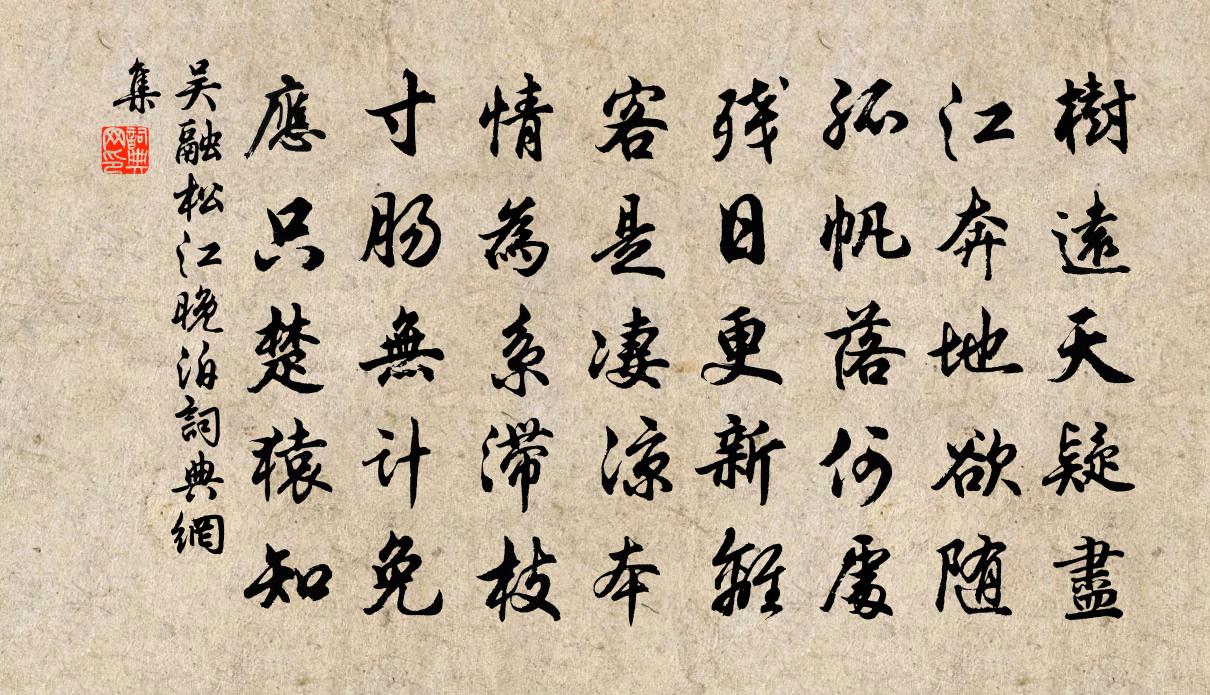 樹遠天疑盡
江奔地欲随
孤帆落何處
残日更新離
客是凄涼本
情為系滯枝
寸肠無计免
應只楚猿知
吴融松江晚泊詞典網
集
詞典
网印